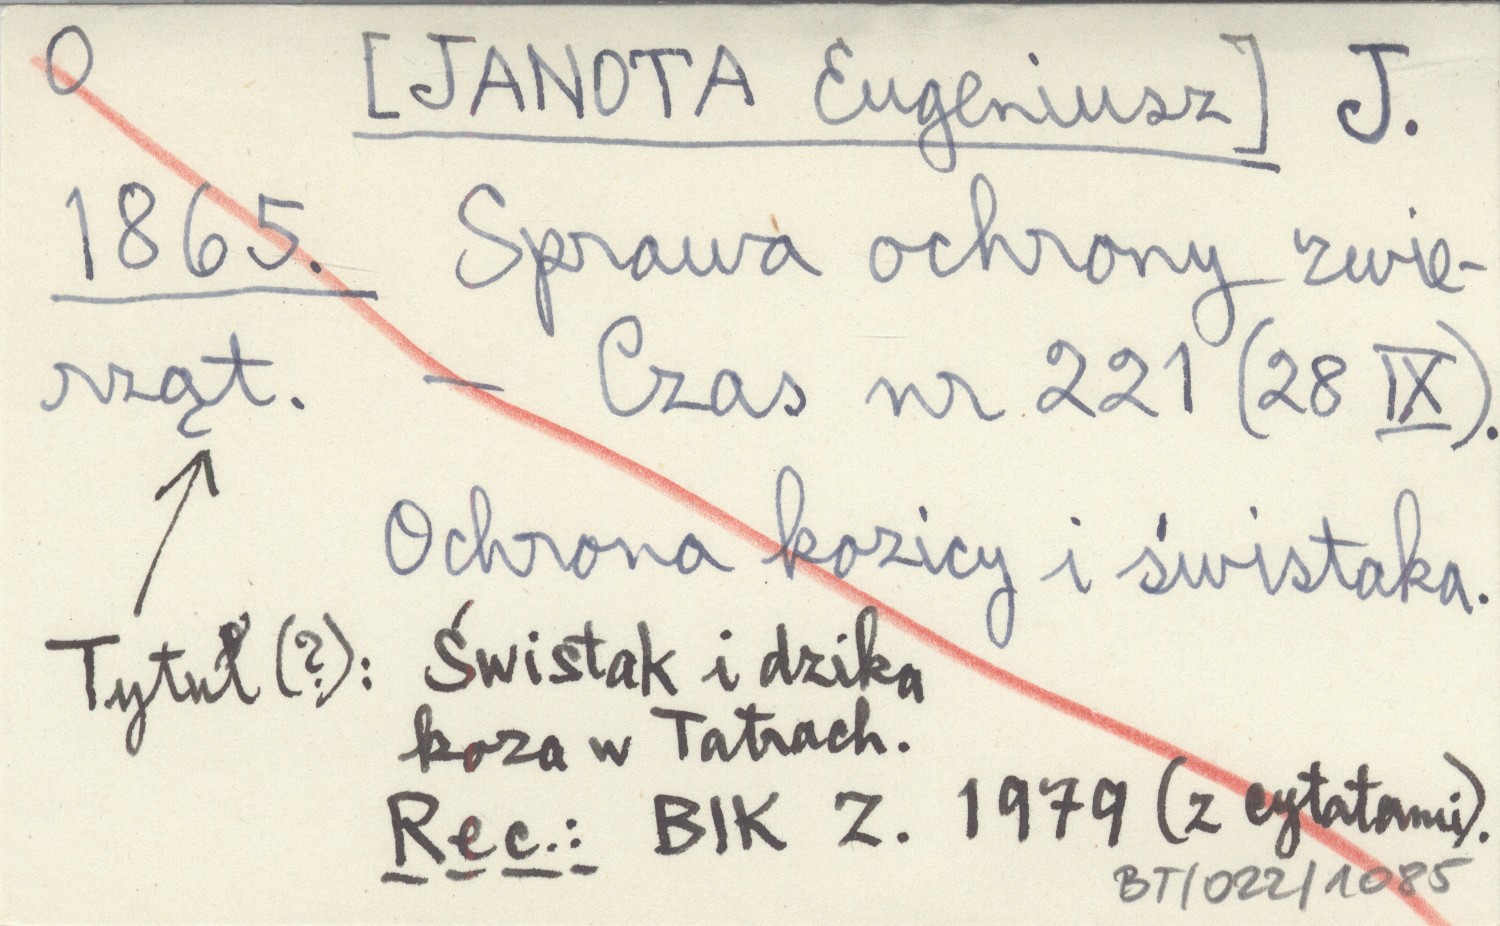 O [JANOTA Eugeniusz] J.
1865. Sprawa ochrony zwie-
rząt. — Czas nr 221 (28 IX).
Ochrona kozicy i świstaka.
Tytuł (?): Świstak i dzika
koza w Tatrach.
Rec.: BIK Z. 1979 (z cytatami).
BT/022/1085